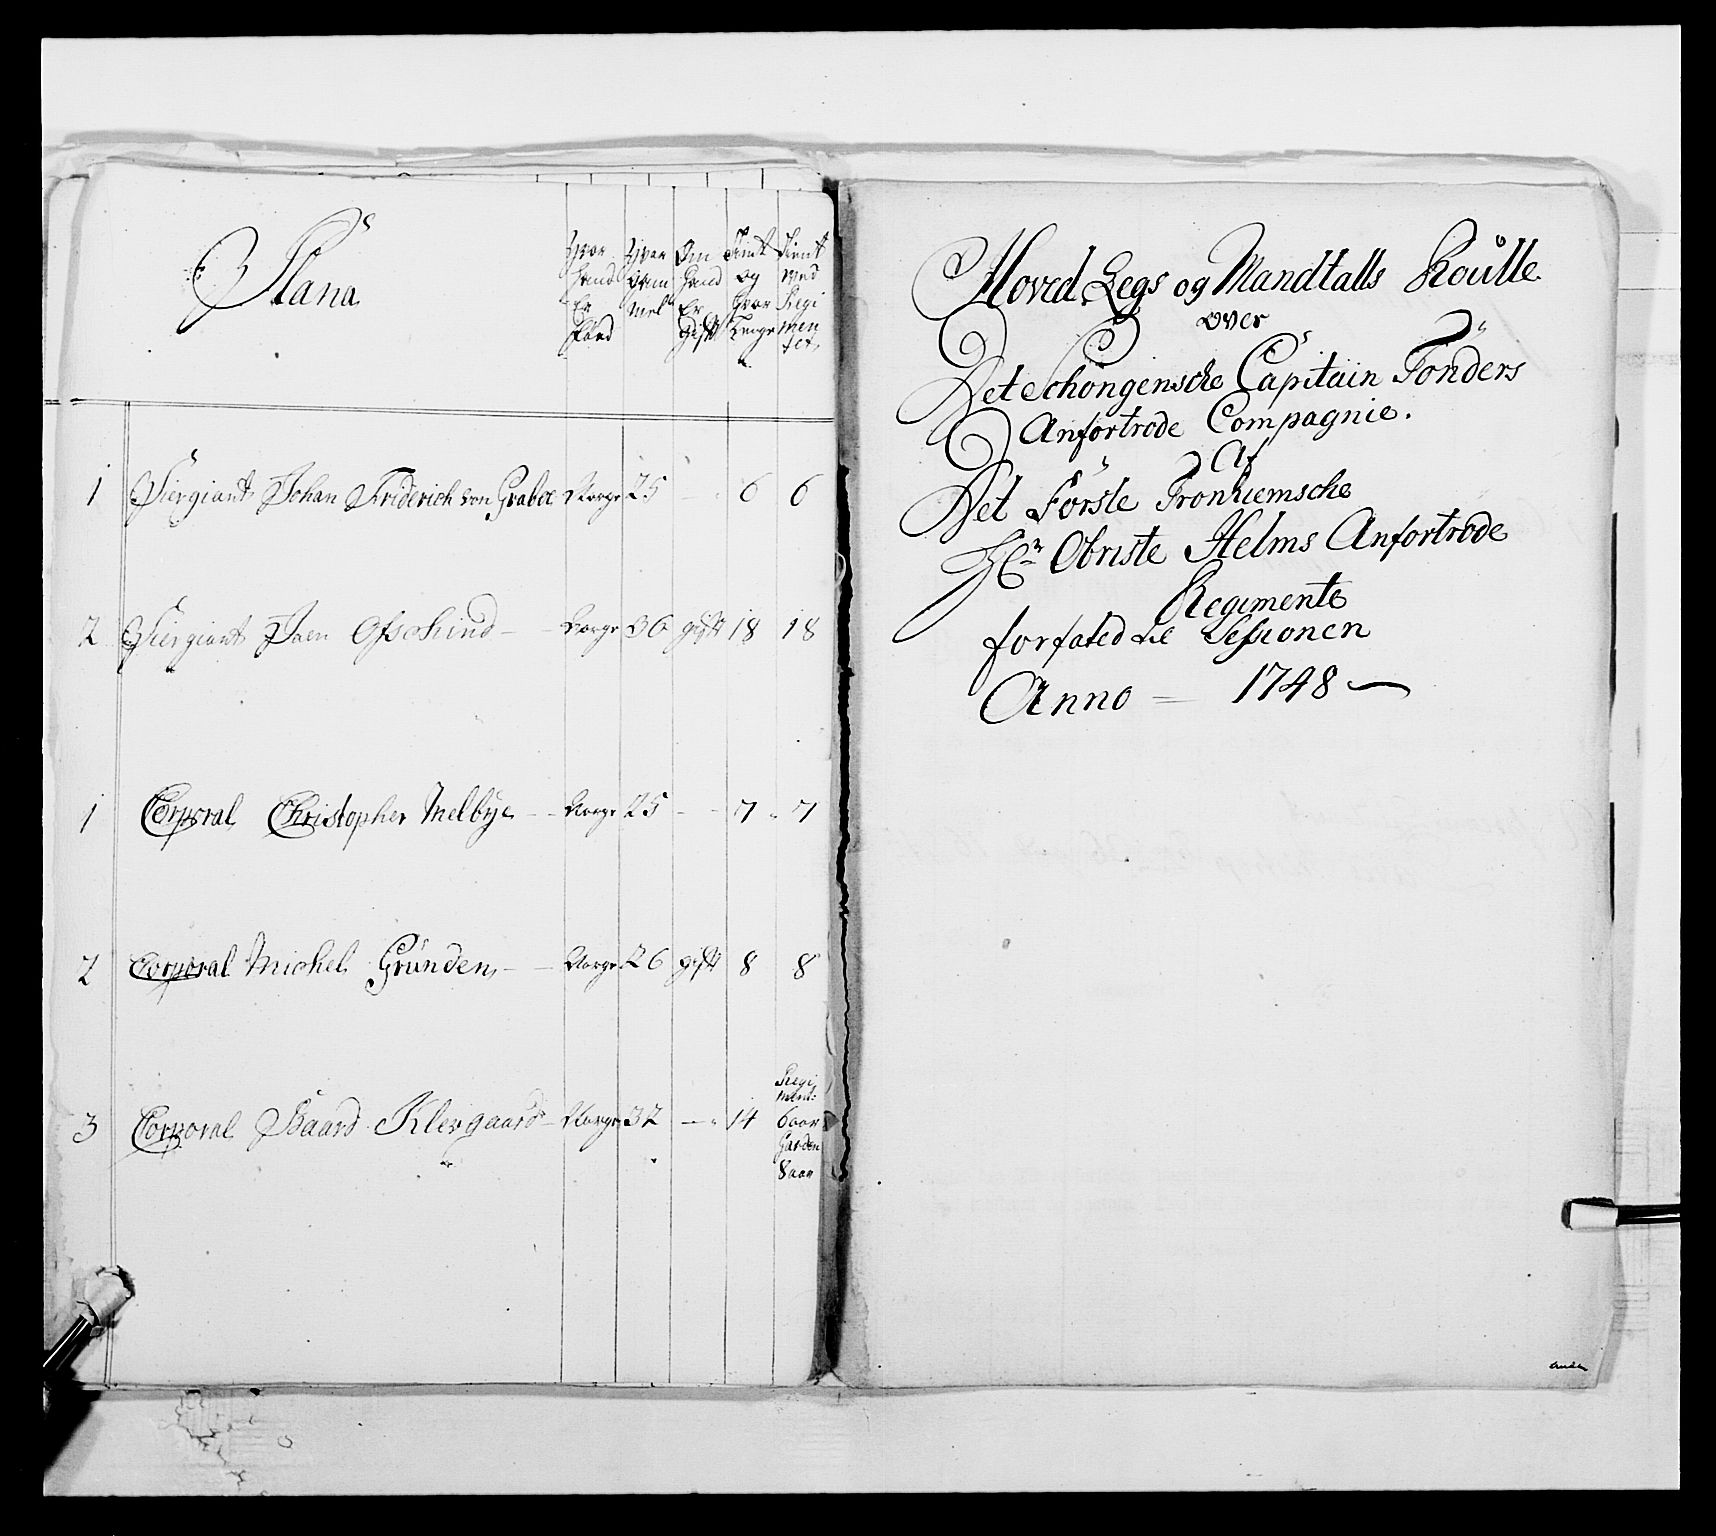 Plana
Hvor Hvor Om Tient Tient
hand Gam hand og ved
Er Mel Er Hvor Regi
født gift Længe men
tet
1 Siergiant Johan Friderich von Graboe Norge 25 - 6 6
2 Siergiant Joen Ofschind - Norge 36 gift 18 18
1 Corporal Christopher Melbye - Norge 25 - 7 7
2 Corporal Michel Gründen - Norge 26 gift 8 8
Regi
ment:
3 Corporal Baard Klevgaard - Norge 32 - 14 6 aar
Garden
8 aar
Hoved Legs og Mandtalls Roülle
over
Det Schöngensche Capitain Tønders
Anfortrode Compagnie.
Af
Det Første Tronhiemsche
Hr Obriste Helms Anfortrode
Regimente
forfatted ved Sessionen
Anno 1748